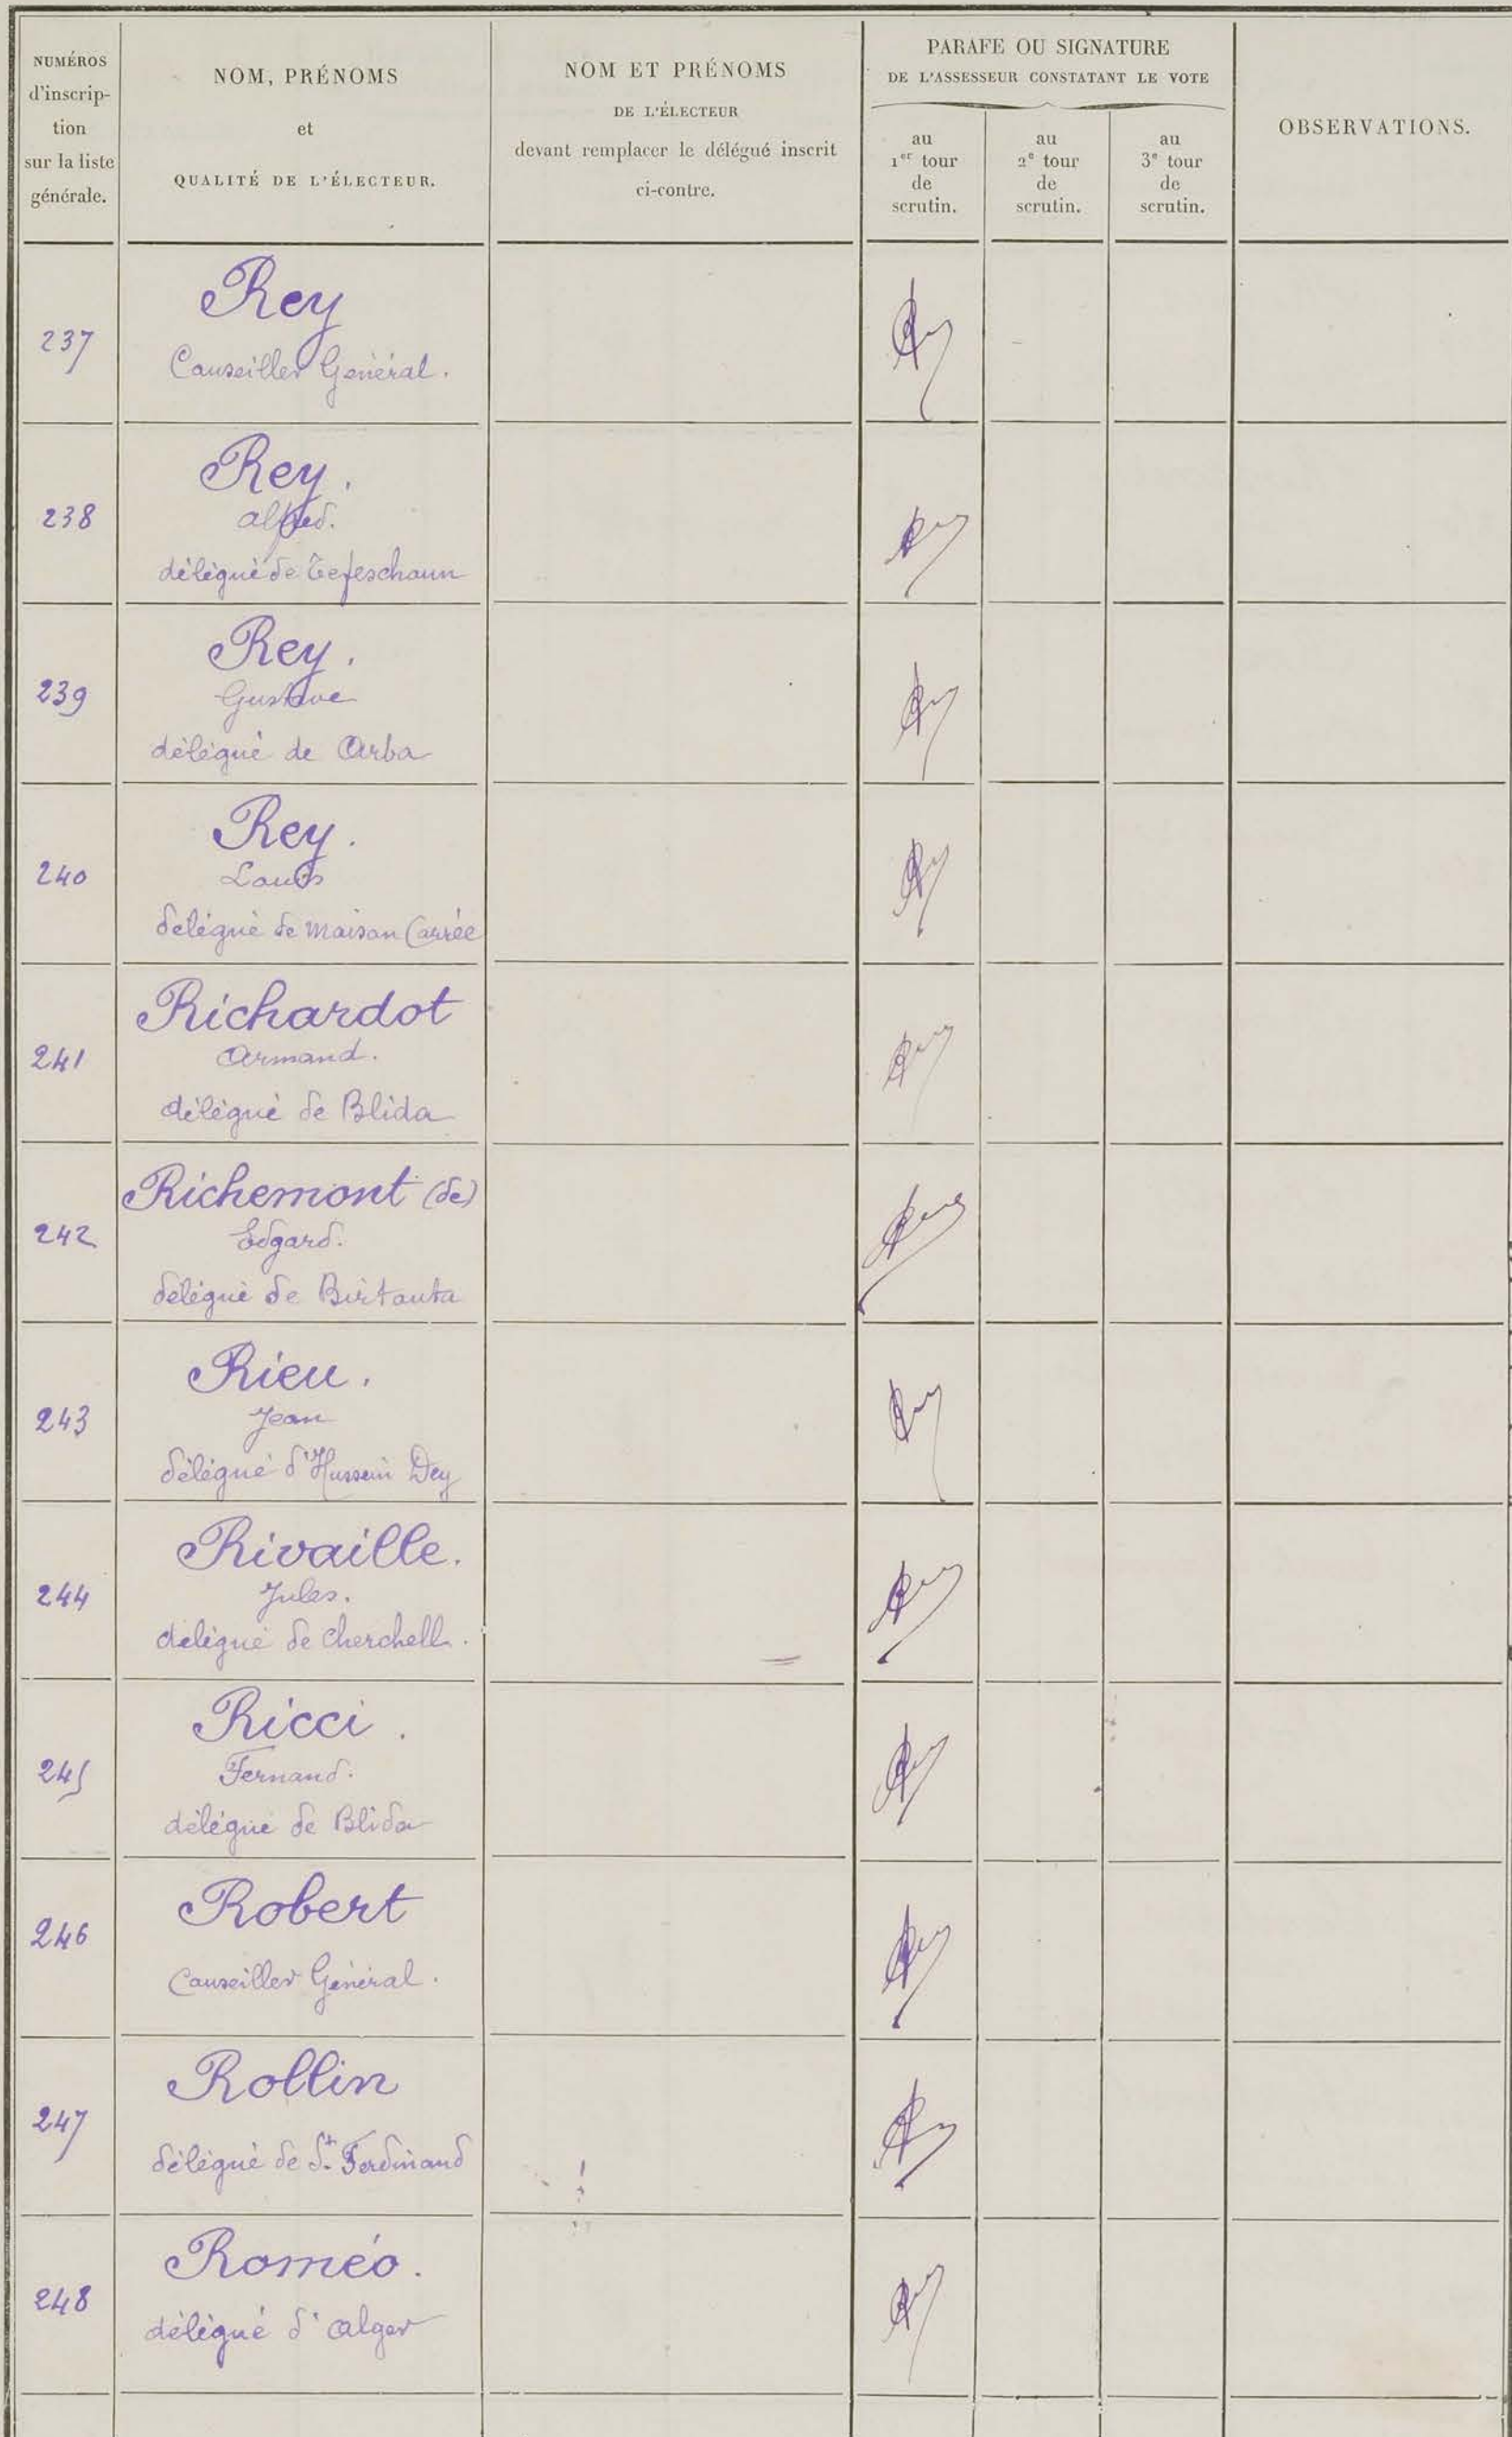 NUMÉROS
d'inscrip-
tion
sur la liste
générale.
NOM, PRÉNOMS
et
QUALITÉ DE L'ÉLECTEUR.
NOM ET PRÉNOMS
DE L'ÉLECTEUR
devant remplacer le délégué inscrit
ci-contre.
PARAFE OU SIGNATURE
DE L'ASSESSEUR CONSTATANT LE VOTE
au
1er tour
de
scrutin.
au
2e tour
de
scrutin.
au
3e tour
de
scrutin.
OBSERVATIONS.
237
Rey
Conseiller Général.
238
Rey.
Alfred.
délégué de Tefeschoun
239
Rey.
Gustave
délégué de Arba
240
Rey.
Louis
délégué de Maison Carrée
241
Richardot
Armand.
délégué de Blida
242
Richemont (de)
Edgard.
délégué de Birtouta
243
Rieu.
Jean
délégué d'Hussein Dey
244
Rivaille.
Jules.
délégué de Cherchell.
245
Ricci.
Fernand.
délégué de Blida
246
Robert
Conseiller Général.
247
Rollin
délégué de St Ferdinand
248
Roméo.
délégué d'Alger